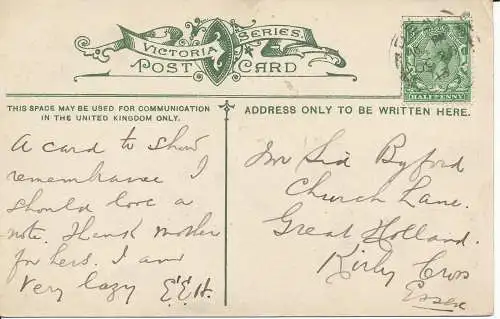 VICTORIA SERIES
POST CARD
THIS SPACE MAY BE USED FOR COMMUNICATION
IN THE UNITED KINGDOM ONLY.
A card to show
remembrance I
should love a
note. Thank mother
for hers. I am
very lazy E.E.H.
ADDRESS ONLY TO BE WRITTEN HERE.
HALFPENNY
Mr Sid Byford
Church Lane.
Great Holland.
Kirby Cross
Essex